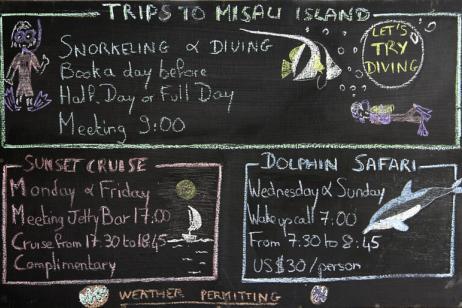 TRIPS TO MISALI ISLAND
SNORKELING & DIVING
Book a day before
Half Day or Full Day
Meeting 9:00
LET'S
TRY
DIVING
SUNSET CRUISE
Monday & Friday
Meeting Jetty Bar 17:00
Cruise from 17:30 to 18:45
Complimentary
DOLPHIN SAFARI
Wednesday & Sunday
Wake up call 7:00
From 7:30 to 8:45
US $30/person
WEATHER PERMITTING